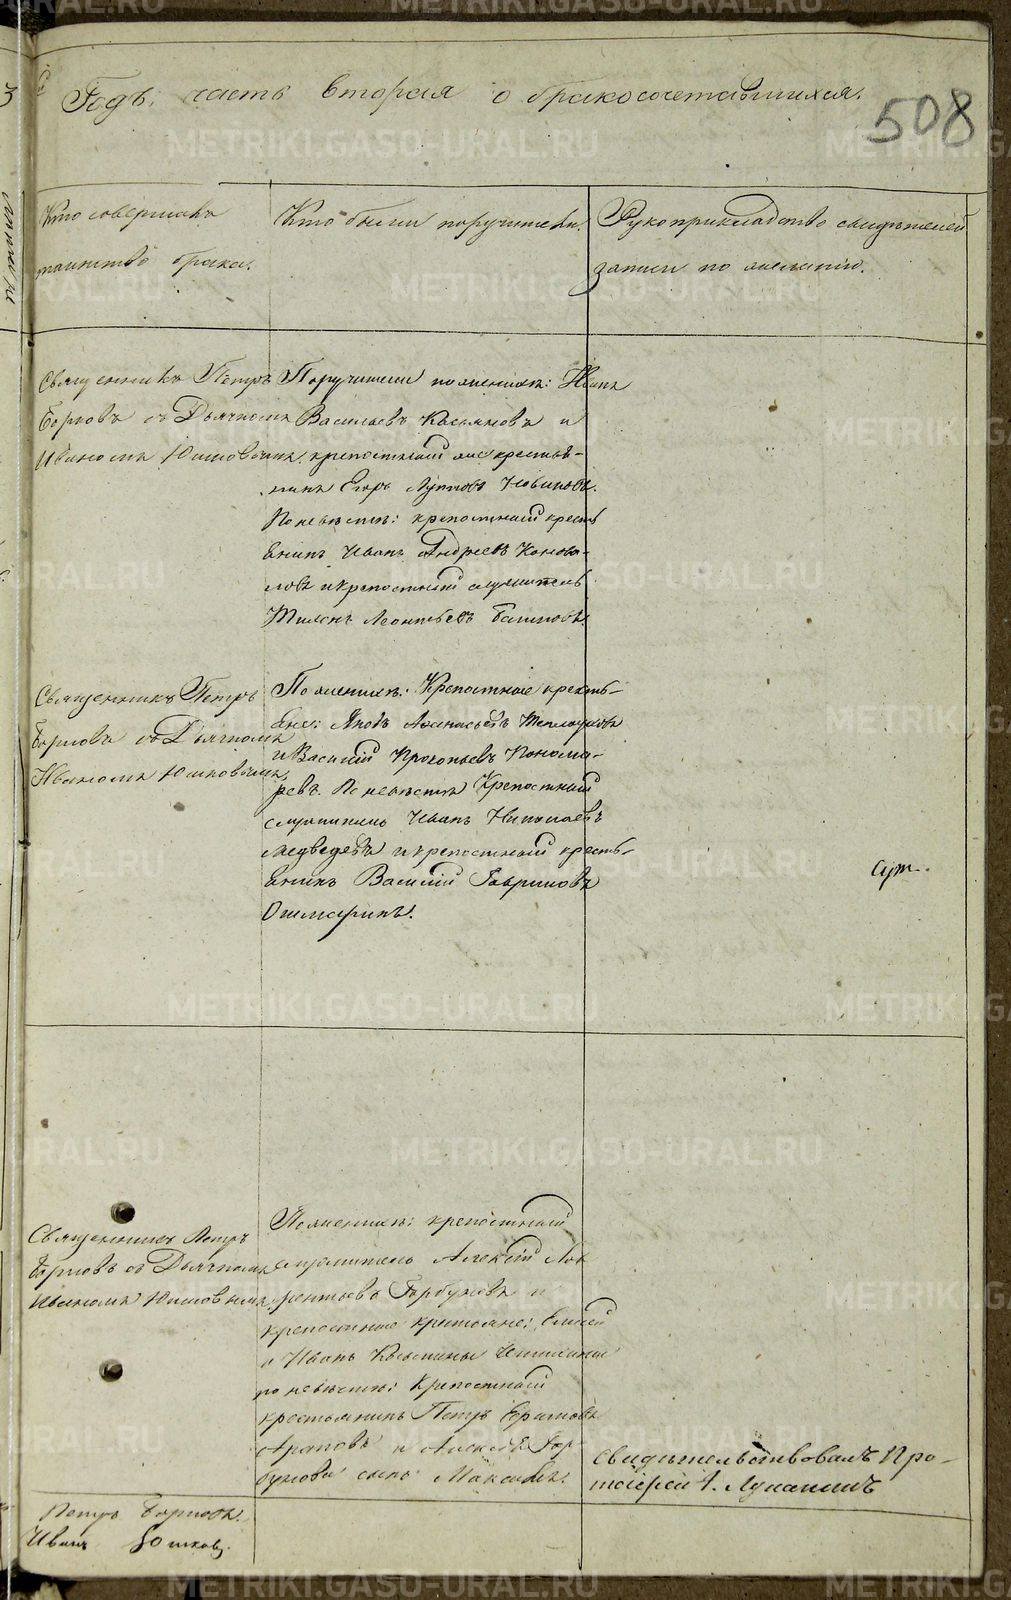 Годъ, часть вторая о бракосочетавшихся.
508
Кто совершалъ
таинство брака.
Кто были поручители.
Рукоприкладство свидѣтелей
записи по желанію.
Священникъ Петръ
Борновъ съ Дьячкомъ
Иваномъ Юшковымъ.
Поручители по женихѣ: Иванъ
Васильевъ Касьяновъ и
крепостный же крестья-
нинъ Егоръ
По невѣстѣ: крепостный кресть
енинъ Иванъ Андреевъ Конова-
ловъ и крепостный служитель
Леонтьевъ
Священникъ Петръ
Борновъ съ Дьячкомъ
Иваномъ Юшковымъ.
По женихѣ: Крепостные кресть-
ене: Яковъ Афанасьевъ Теплоуховъ
и Василій Прокопьевъ Понома-
ревъ. По невѣстѣ Крепостный
служитель Иванъ Николаевъ
Медведевъ и крепостный кресть-
енинъ Василій Гавриловъ
Ошмаринъ.
Священникъ Петръ
Борновъ съ Дьячкомъ
Иваномъ Юшковымъ.
По женихѣ: крепостный
служитель Алексѣй Лав
рентьевъ Горбуновъ и
крепостные крестьяне: Елисей
и Иванъ
по невѣстѣ: Крепостный
крестьянинъ Петръ
Араповъ и Алексѣя Гор-
бунова сынъ Максимъ.
Свидѣтельствовалъ Про-
тоіерей І. Луканинъ
Петръ Борновъ.
Иванъ Юшковъ.
METRIKI.GASO-URAL.RU